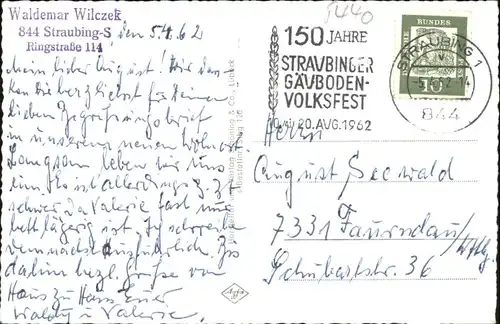 Waldemar Wilczek
844 Straubing-S
Ringstraße 114
den 5.4.62
Mein lieber August! Wir danken
Dir herzlichst für Deinen
lieben Begrüßungsbrief
in unserem neuen Wohnort.
Langsam leben wir uns
ein. Es ist allerdings z. Zt
schwer, da Valerie fast nur
bettlägerig ist. Ich schreibe
demnächst ausführlich. Bis
dahin herzl. Grüße von
Haus zu Haus Euer
Waldy u. Valerie.
5440
150 JAHRE
STRAUBINGER
GÄUBODEN-
VOLKSFEST
20. AUG. 1962
STRAUBING 1
844
DEUTSCHE BUNDESPOST
10
Herrn
August Seewald
7331 Faurndau/Wttbg
Schubartstr. 36
Agfa